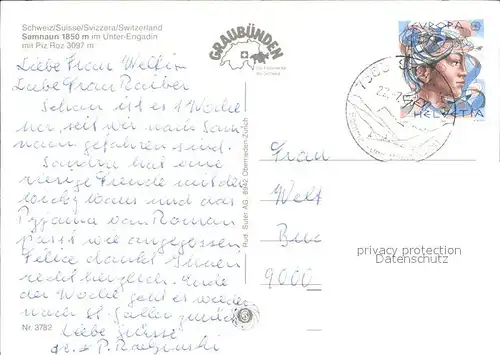 Schweiz/Suisse/Svizzera/Switzerland
Samnaun 1850 m im Unter-Engadin
mit Piz Roz 3097 m
GRAUBÜNDEN
EUROPA
HELVETIA
Liebe Frau
Liebe Frau Raiber
Schon ist es 1 Woche
her, seit wir nach Sam-
naun gefahren sind.
Sandra hat eine
riesige Freude mit der
und das
Pyjama von Roman
passt wie angegossen.
dankt Ihnen
recht herzlich. Ende
der Woche geht es wieder
nach St. Gallen zurück
Liebe Grüsse
Nr. 3782
Rud. Suter AG, 8942 Oberrieden-Zürich
Frau
Welt
9000
privacy protection
Datenschutz